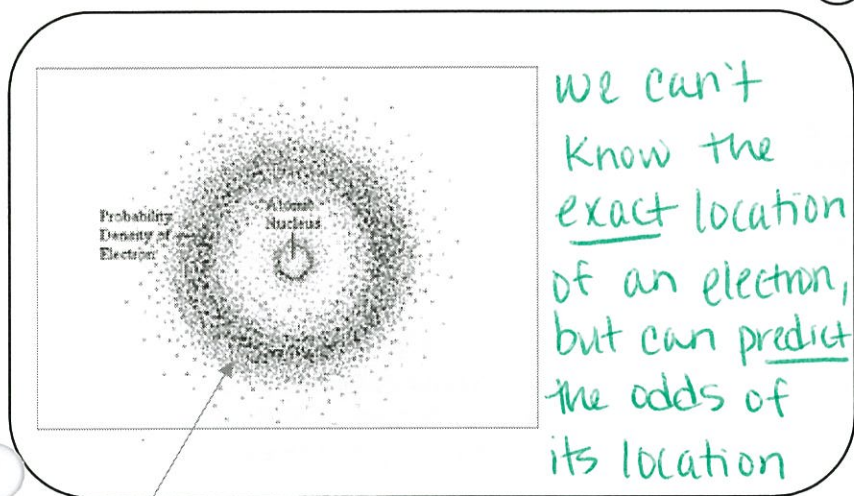 Probability
Density of
Electron
Atomic
Nucleus
we can't
know the
exact location
of an electron,
but can predict
the odds of
its location